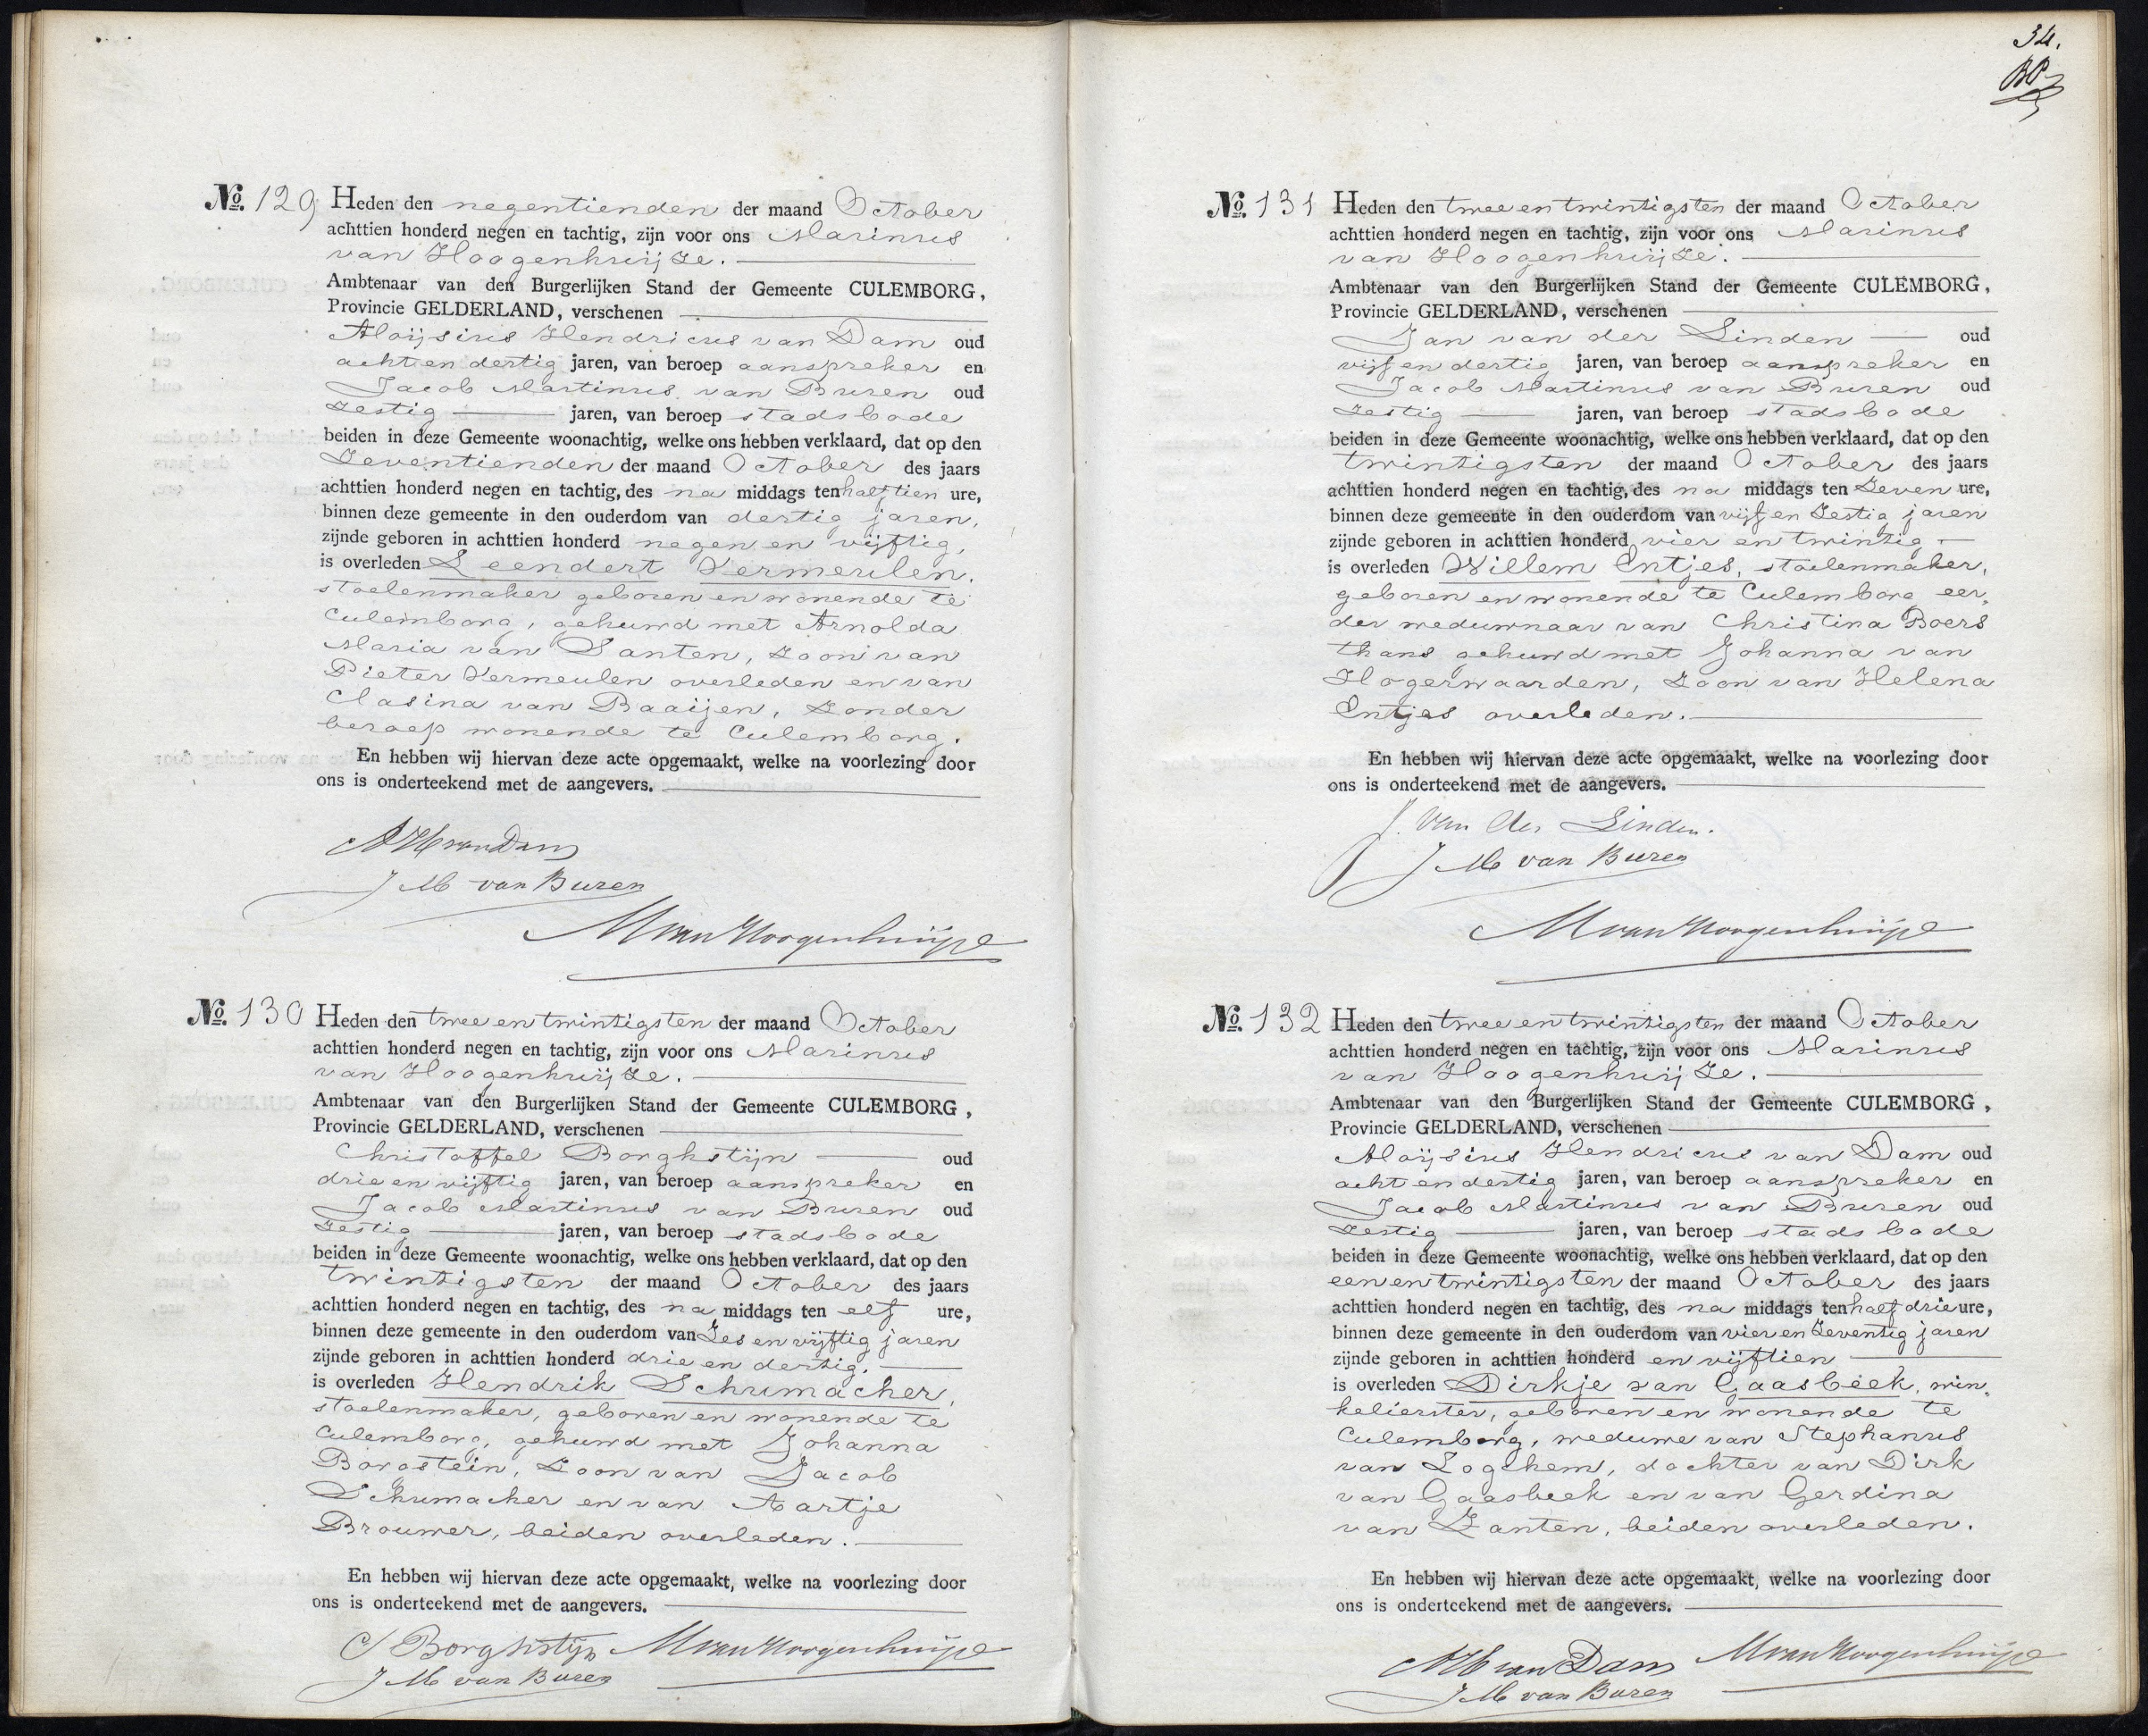 No. 129 Heden den negentienden der maand October
achttien honderd negen en tachtig, zijn voor ons Marinus
van Hoogenhuijze.
Ambtenaar van den Burgerlijken Stand der Gemeente CULEMBORG,
Provincie GELDERLAND, verschenen
Aloijsius Hendricus van Dam oud
acht en dertig jaren, van beroep aanspreker en
Jacob Martinus van Buren oud
zestig jaren, van beroep stadsbode
beiden in deze Gemeente woonachtig, welke ons hebben verklaard, dat op den
zeventienden der maand October des jaars
achttien honderd negen en tachtig, des na middags ten half tien ure,
binnen deze gemeente in den ouderdom van dertig jaren,
zijnde geboren in achttien honderd negen en vijftig,
is overleden Leendert Vermeulen,
stoelenmaker geboren en wonende te
Culemborg, gehuwd met Arnolda
Maria van Santen, zoon van
Pieter Vermeulen overleden en van
Clasina van Baaijen, zonder
beroep wonende te Culemborg.
En hebben wij hiervan deze acte opgemaakt, welke na voorlezing door
ons is onderteekend met de aangevers.
AH van Dam
J M van Buren
M van Hoogenhuijze
No. 130 Heden den twee en twintigsten der maand October
achttien honderd negen en tachtig, zijn voor ons Marinus
van Hoogenhuijze.
Ambtenaar van den Burgerlijken Stand der Gemeente CULEMBORG,
Provincie GELDERLAND, verschenen
Christoffel Borghstijn oud
drie en vijftig jaren, van beroep aanspreker en
Jacob Martinus van Buren oud
zestig jaren, van beroep stadsbode
beiden in deze Gemeente woonachtig, welke ons hebben verklaard, dat op den
twintigsten der maand October des jaars
achttien honderd negen en tachtig, des na middags ten elf ure,
binnen deze gemeente in den ouderdom van zes en vijftig jaren
zijnde geboren in achttien honderd drie en dertig.
is overleden Hendrik Schumacher,
stoelenmaker, geboren en wonende te
Culemborg, gehuwd met Johanna
Borgstein, zoon van Jacob
Schumacher en van Aartje
Brouwer, beiden overleden.
En hebben wij hiervan deze acte opgemaakt, welke na voorlezing door
ons is onderteekend met de aangevers.
C Borghstijn M van Hoogenhuijze
J M van Buren
34.
No. 131 Heden den twee en twintigsten der maand October
achttien honderd negen en tachtig, zijn voor ons Marinus
van Hoogenhuijze.
Ambtenaar van den Burgerlijken Stand der Gemeente CULEMBORG,
Provincie GELDERLAND, verschenen
Jan van der Linden oud
vijf en dertig jaren, van beroep aanspreker en
Jacob Martinus van Buren oud
zestig jaren, van beroep stadsbode
beiden in deze Gemeente woonachtig, welke ons hebben verklaard, dat op den
twintigsten der maand October des jaars
achttien honderd negen en tachtig, des na middags ten zeven ure,
binnen deze gemeente in den ouderdom van vijf en zestig jaren
zijnde geboren in achttien honderd vier en twintig
is overleden Willem Entjes, stoelenmaker,
geboren en wonende te Culemborg eer,
der weduwnaar van Christina Boers
thans gehuwd met Johanna van
Hogerwaarden, zoon van Helena
Entjes overleden.
En hebben wij hiervan deze acte opgemaakt, welke na voorlezing door
ons is onderteekend met de aangevers.
J. van der Linden.
J M van Buren
M van Hoogenhuijze
No. 132 Heden den twee en twintigsten der maand October
achttien honderd negen en tachtig, zijn voor ons Marinus
van Hoogenhuijze.
Ambtenaar van den Burgerlijken Stand der Gemeente CULEMBORG,
Provincie GELDERLAND, verschenen
Aloijsius Hendricus van Dam oud
acht en dertig jaren, van beroep aanspreker en
Jacob Martinus van Buren oud
zestig jaren, van beroep stadsbode
beiden in deze Gemeente woonachtig, welke ons hebben verklaard, dat op den
een en twintigsten der maand October des jaars
achttien honderd negen en tachtig, des na middags ten half drie ure,
binnen deze gemeente in den ouderdom van vier en zeventig jaren
zijnde geboren in achttien honderd en vijftien
is overleden Dirkje van Gaasbeek, win,
kelierster, geboren en wonende te
Culemborg, weduwe van Stephanus
van Loghem, dochter van Dirk
van Gaasbeek en van Gerdina
van Zanten, beiden overleden.
En hebben wij hiervan deze acte opgemaakt, welke na voorlezing door
ons is onderteekend met de aangevers.
AH van Dam M van Hoogenhuijze
J M van Buren